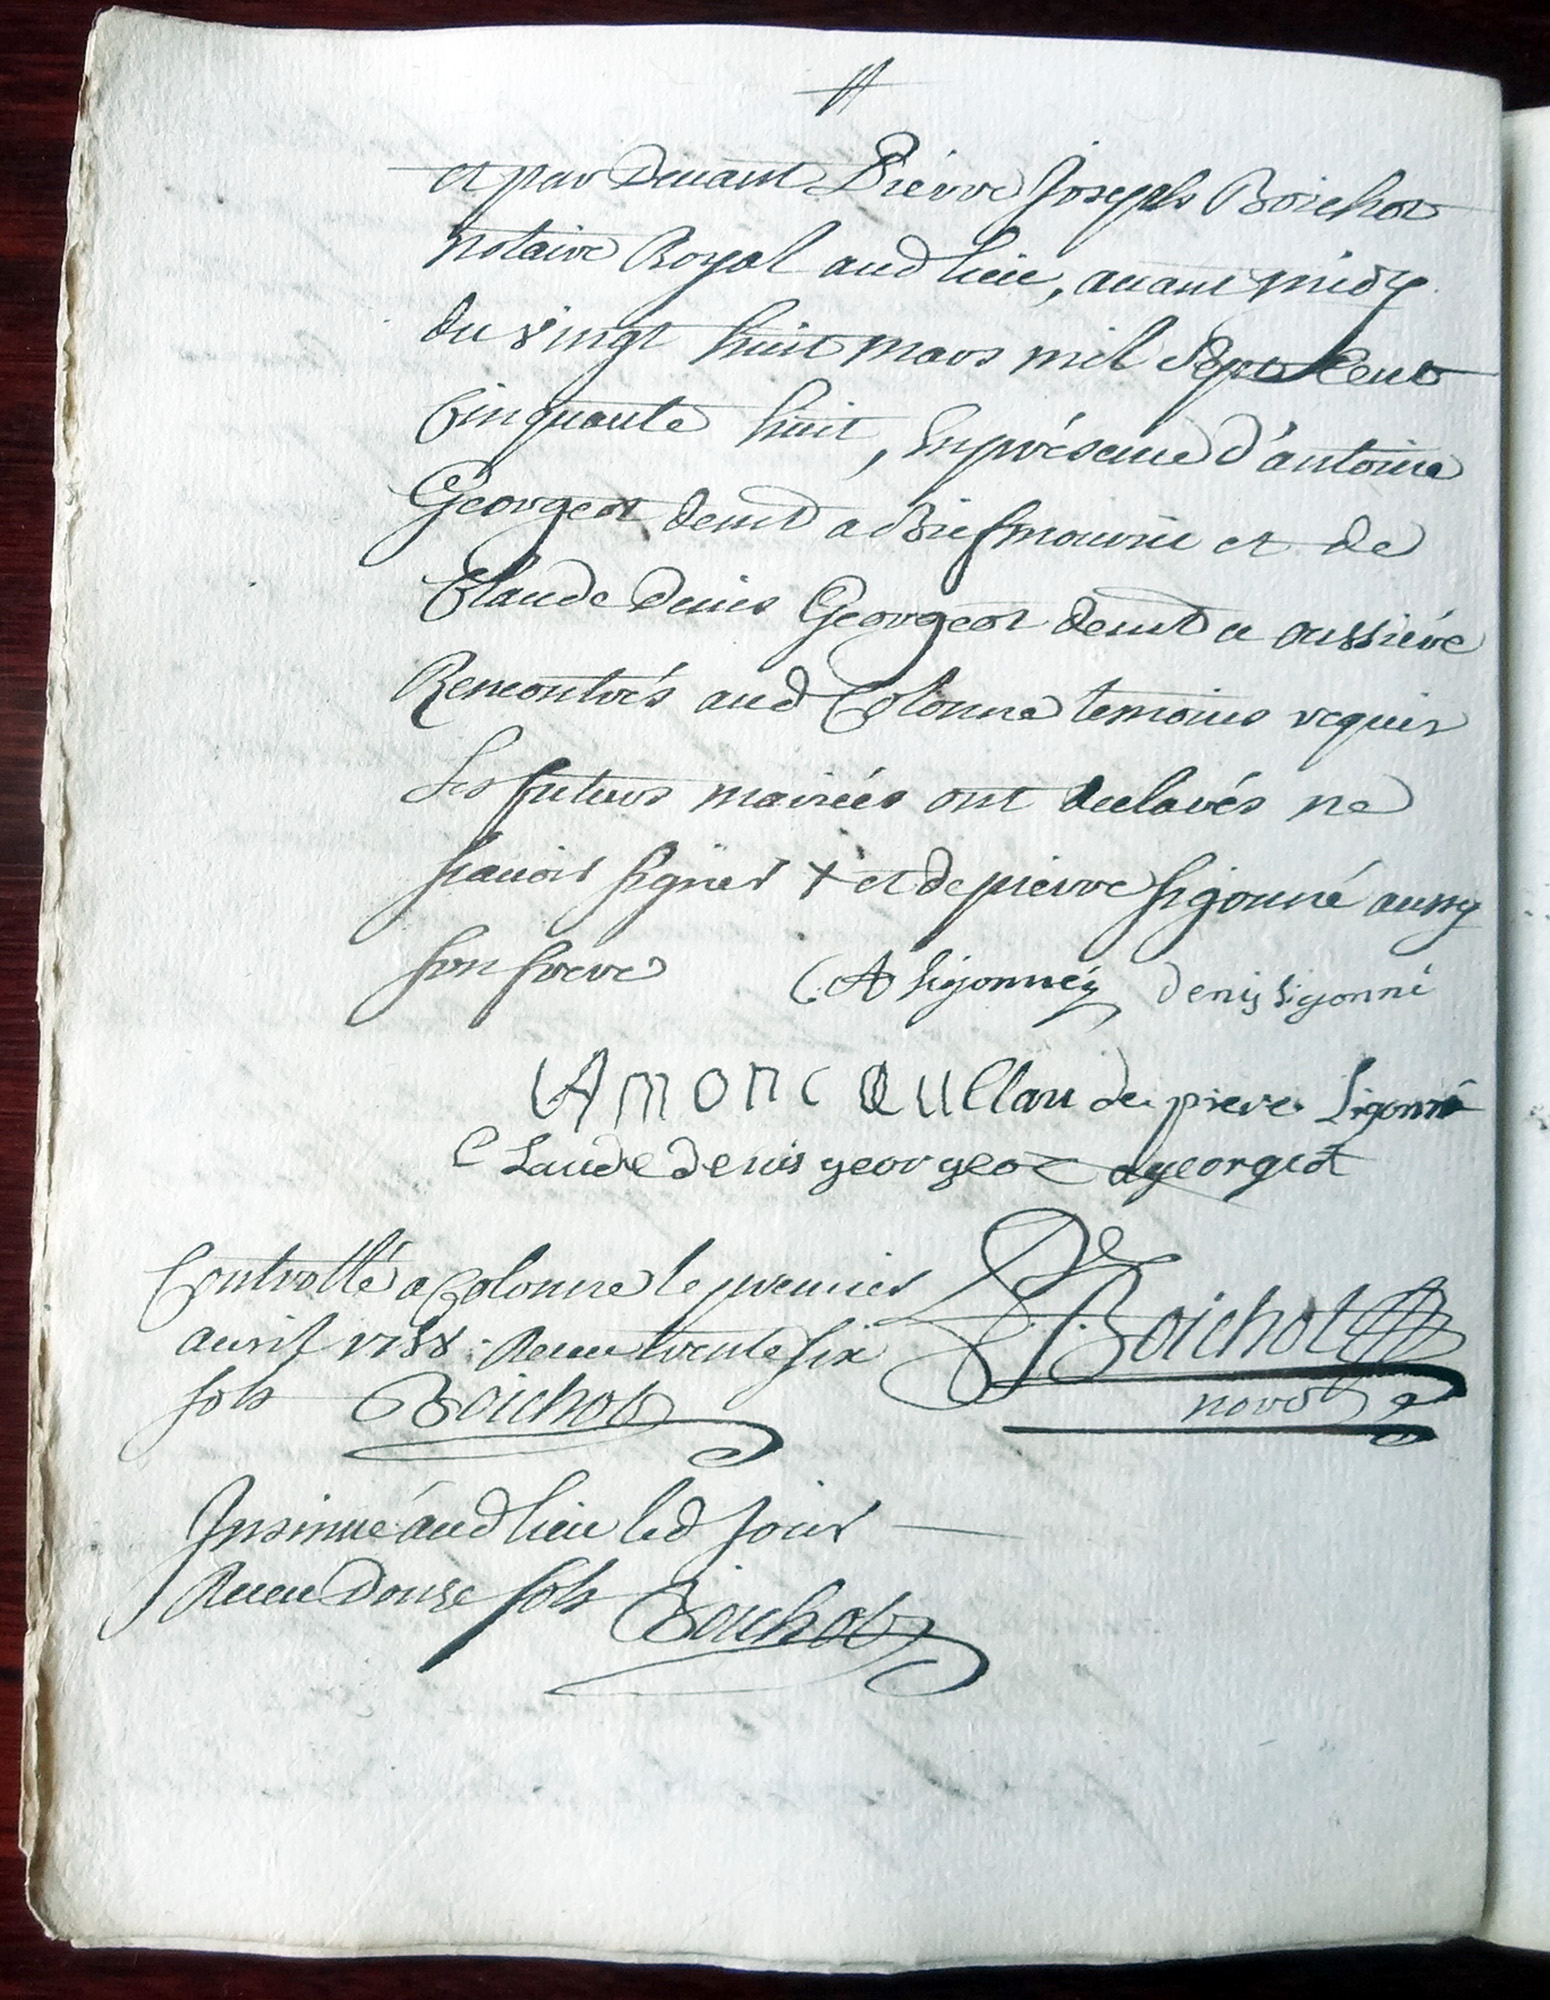 et par devant Pierre Joseph Boichot
notaire Royal aud lieu, avant midy
du vingt huit mars mil Sept Cent
Cinquante huit, En présence d'antoine
Georgeot demt a Biefmourin et de
Claude denis Georgeot demt a oussière
Rencontrés aud Colonne temoins requis
Les futurs mairiés ont declarés ne
scavoir signer + et de pierre sigonné aussy
son frere CA sigonney denis sigonné
A monc Claude pierre sigonné
Claude denis georgeot a georgeot
Controllé a Colonne le premier
avril 1758 : Receu trente six
sols Boichot
J. Boichot
nore
Insinué aud lieu led Jour
Receu Douze sols Boichot